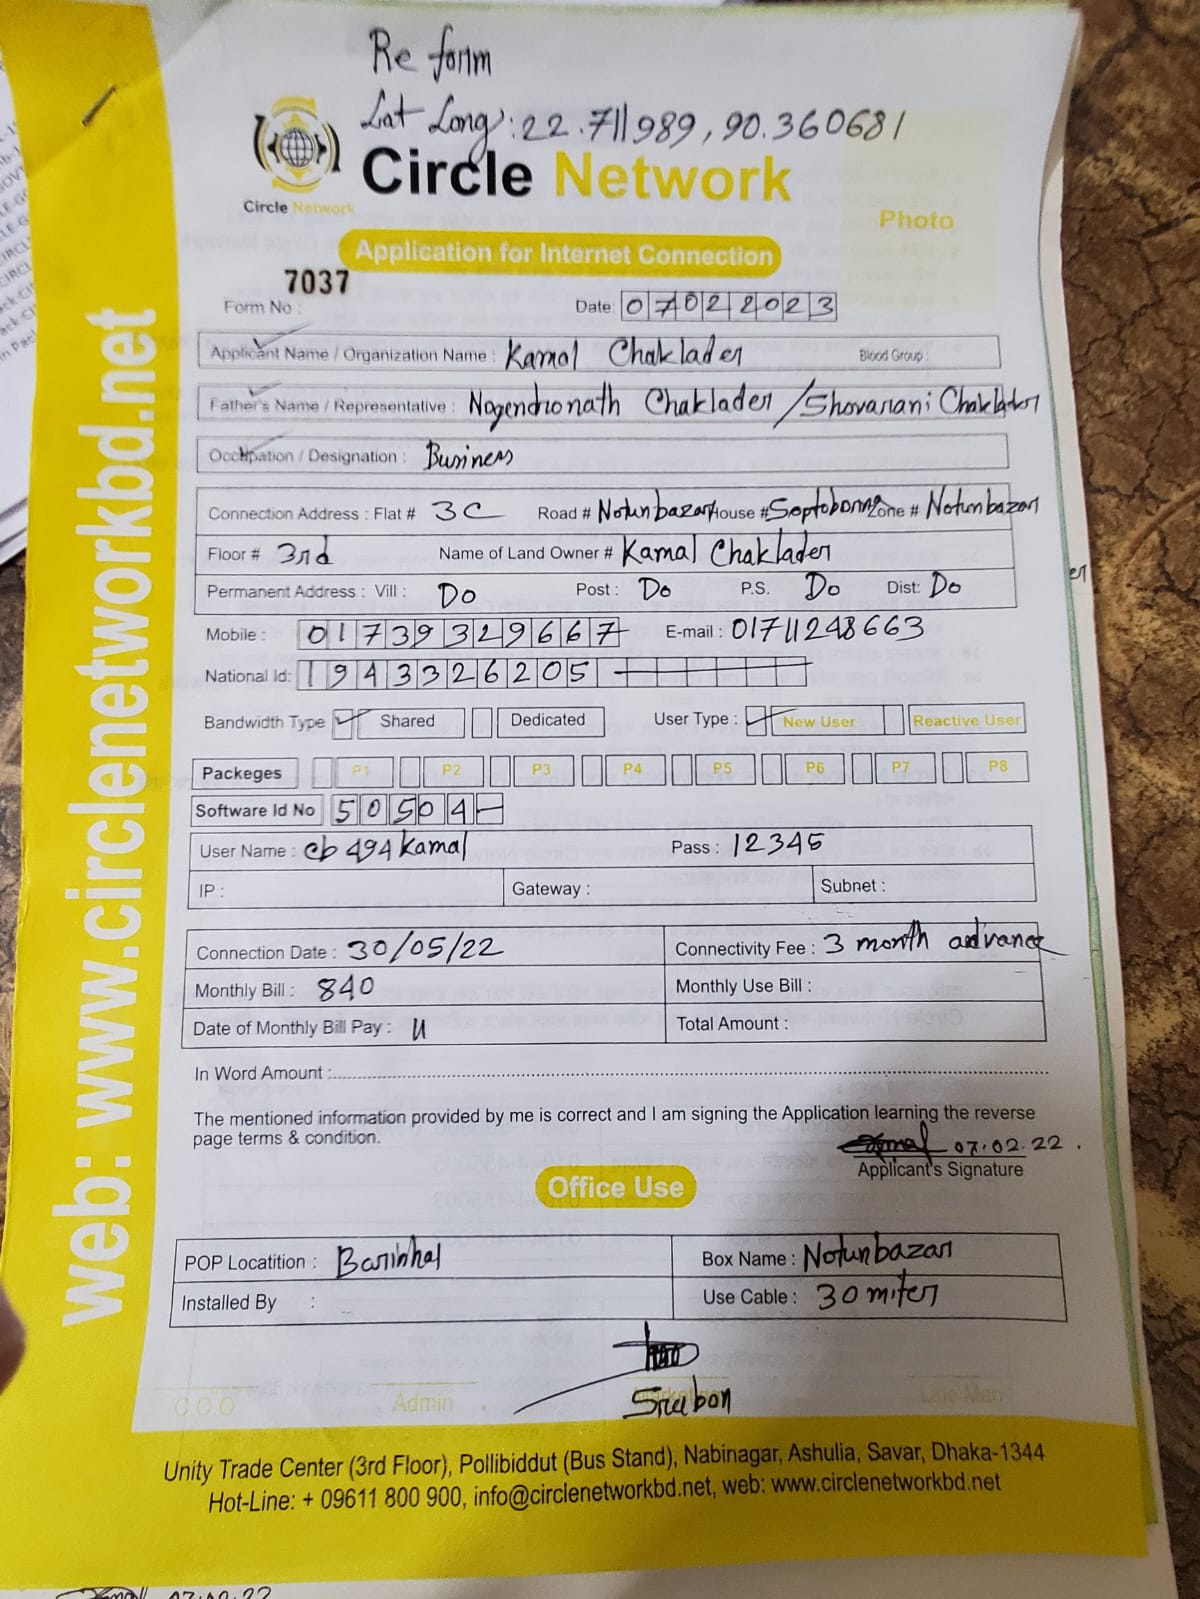 Re form
Lat Long: 22.711989, 90.360681
Circle Network
Circle Network
Photo
Application for Internet Connection
7037
Form No :
Date: 07022023
Applicant Name / Organization Name : Kamal Chaklader
Blood Group :
Father's Name / Representative : Nogendronath Chaklader / Shovarani Chaklader
Occupation / Designation : Business
Connection Address : Flat # 3C Road # Notunbazar House # Septoborna Zone # Notunbazar
Floor # 3rd Name of Land Owner # Kamal Chaklader
Permanent Address : Vill : Do Post : Do P.S. Do Dist: Do
Mobile : 01739329667 E-mail : 01711248663
National Id: 1943326205
Bandwidth Type Shared Dedicated User Type : New User Reactive User
Packeges P1 P2 P3 P4 P5 P6 P7 P8
Software Id No 50504
User Name : cb494kamal Pass : 12345
IP : Gateway : Subnet :
Connection Date : 30/05/22 Connectivity Fee : 3 month advance
Monthly Bill : 840 Monthly Use Bill :
Date of Monthly Bill Pay : Total Amount :
In Word Amount :
The mentioned information provided by me is correct and I am signing the Application learning the reverse
page terms & condition.
07.02.22
Applicant's Signature
Office Use
POP Locatition : Barishal Box Name : Notunbazar
Installed By : Use Cable : 30 miter
Srabon
C.O.O Admin Line Man
Unity Trade Center (3rd Floor), Pollibiddut (Bus Stand), Nabinagar, Ashulia, Savar, Dhaka-1344
Hot-Line: + 09611 800 900, info@circlenetworkbd.net, web: www.circlenetworkbd.net
web: www.circlenetworkbd.net